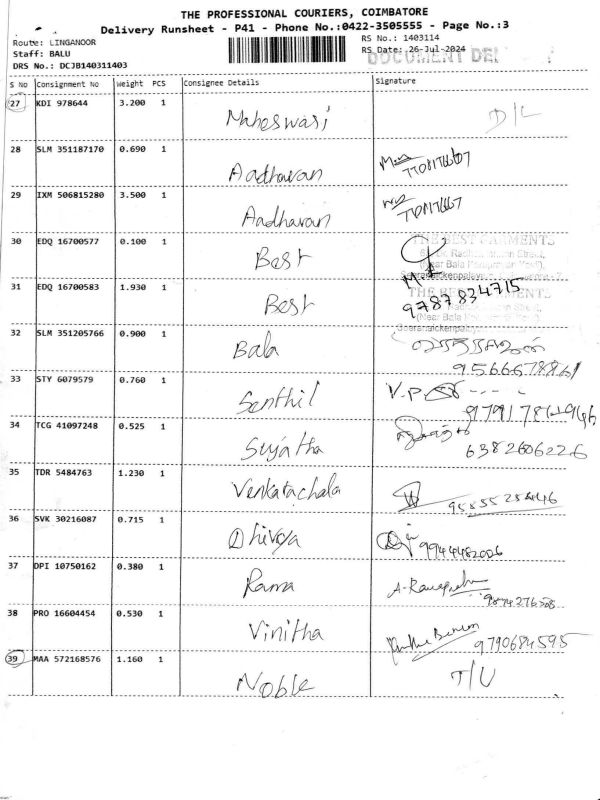 THE PROFESSIONAL COURIERS, COIMBATORE
Delivery Runsheet - P41 - Phone No.:0422-3505555 - Page No.:3
Route: LINGANOOR
RS No.: 1403114
Staff: BALU
RS Date: 26-Jul-2024
DOCUMENT DEL
DRS No.: DCJB140311403
S No Consignment No Weight PCS Consignee Details Signature
27 KDI 978644 3.200 1 Maheswari D/L
28 SLM 351187170 0.690 1 Aadhavan
29 IXM 506815280 3.500 1 Aadhavan
30 EDQ 16700577 0.100 1 Best
THE BEST GARMENTS
31 EDQ 16700583 1.930 1 Best 9787834715
32 SLM 351205766 0.900 1 Bala
9566678861
33 STY 6079579 0.760 1 Senthil V.P
34 TCG 41097248 0.525 1 Sujatha
6382606226
35 TDR 5484763 1.230 1 Venkatachala
36 SVK 30216087 0.715 1 Dhivya
9944482006
37 DPI 10750162 0.380 1 Rama
38 PRO 16604454 0.530 1 Vinitha
9790684595
39 MAA 572168576 1.160 1 Noble T/U